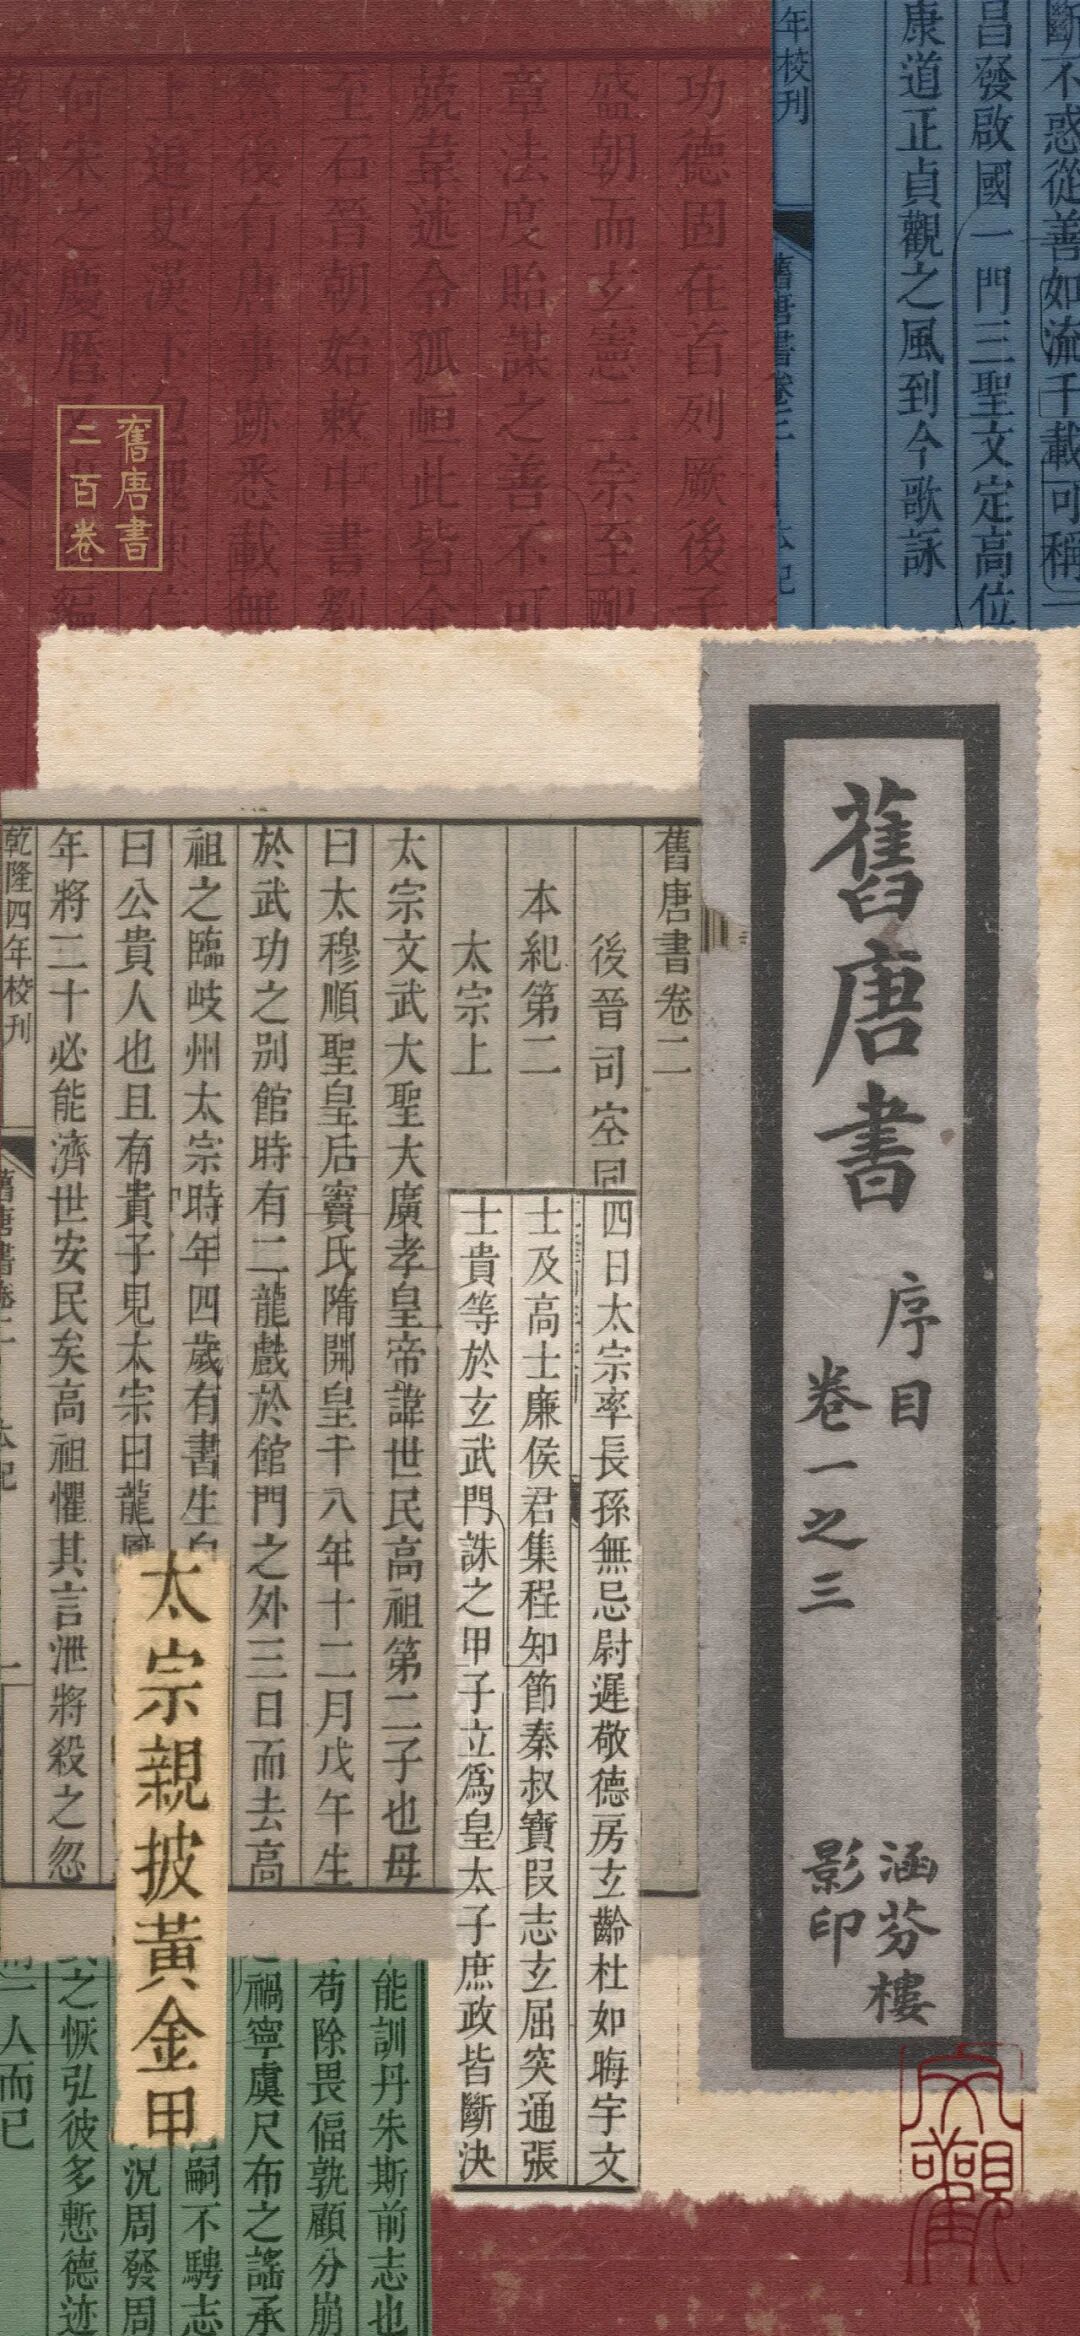 斷不惑從善如流千載可稱一
昌發啟國一門三聖文定高位
康道正貞觀之風到今歌詠
年校刊
舊唐書卷三
功德固在首列厥後子
盛朝而玄憲二宗至郥
章法度貽謀之善不可
兢韋述令狐峘此皆全
至石晉朝始敕中書劉
後有唐事跡悉載無
上追史漢下
何宋之慶曆
舊唐書
二百卷
舊唐書
序目
卷一之三
涵芬樓
影印
舊唐書卷二
後晉司空同
本紀第二
太宗上
太宗文武大聖大廣孝皇帝諱世民高祖第二子也母
曰太穆順聖皇后竇氏隋開皇十八年十二月戊午生
於武功之別館時有二龍戲於館門之外三日而去高
祖之臨岐州太宗時年四歲有書生自
曰公貴人也且有貴子見太宗曰龍鳳
年將二十必能濟世安民矣高祖懼其言泄將殺之忽
乾隆四年校刊
舊唐書卷二
四日太宗率長孫無忌尉遲敬德房玄齡杜如晦宇文
士及高士廉侯君集程知節秦叔寶段志玄屈突通張
士貴等於玄武門誅之甲子立為皇太子庶政皆斷決
太宗親披黃金甲
能訓丹朱斯前志也
苟除畏偪孰顧分崩
禍寧虞尺布之謠承
嗣不騁志
況周發周
之恢弘彼多慙德迹
一人而已